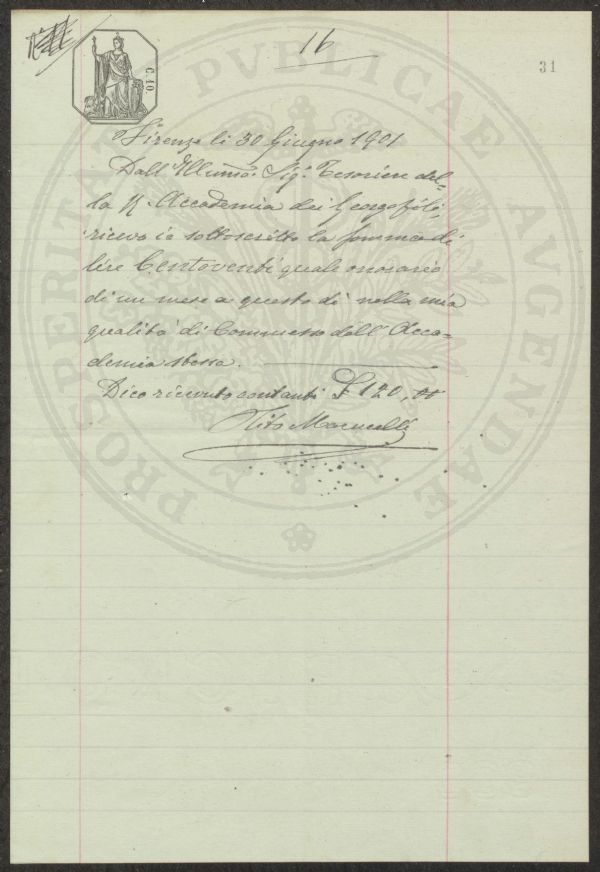 16
31
C. 10.
PROSPERITATI PVBLICAE AVGENDAE
Firenze li 30 Giugno 1901
Dall'Illumo. Sig. Tesoriere del-
la R. Accademia dei Georgofili,
ricevo io sottoscritto la somma di
lire Centoventi quale onorario
di un mese a questo dì nella mia
qualità di Commesso dell'Acca-
demia stessa.
Dico ricevute contanti £ 120,00
Tito